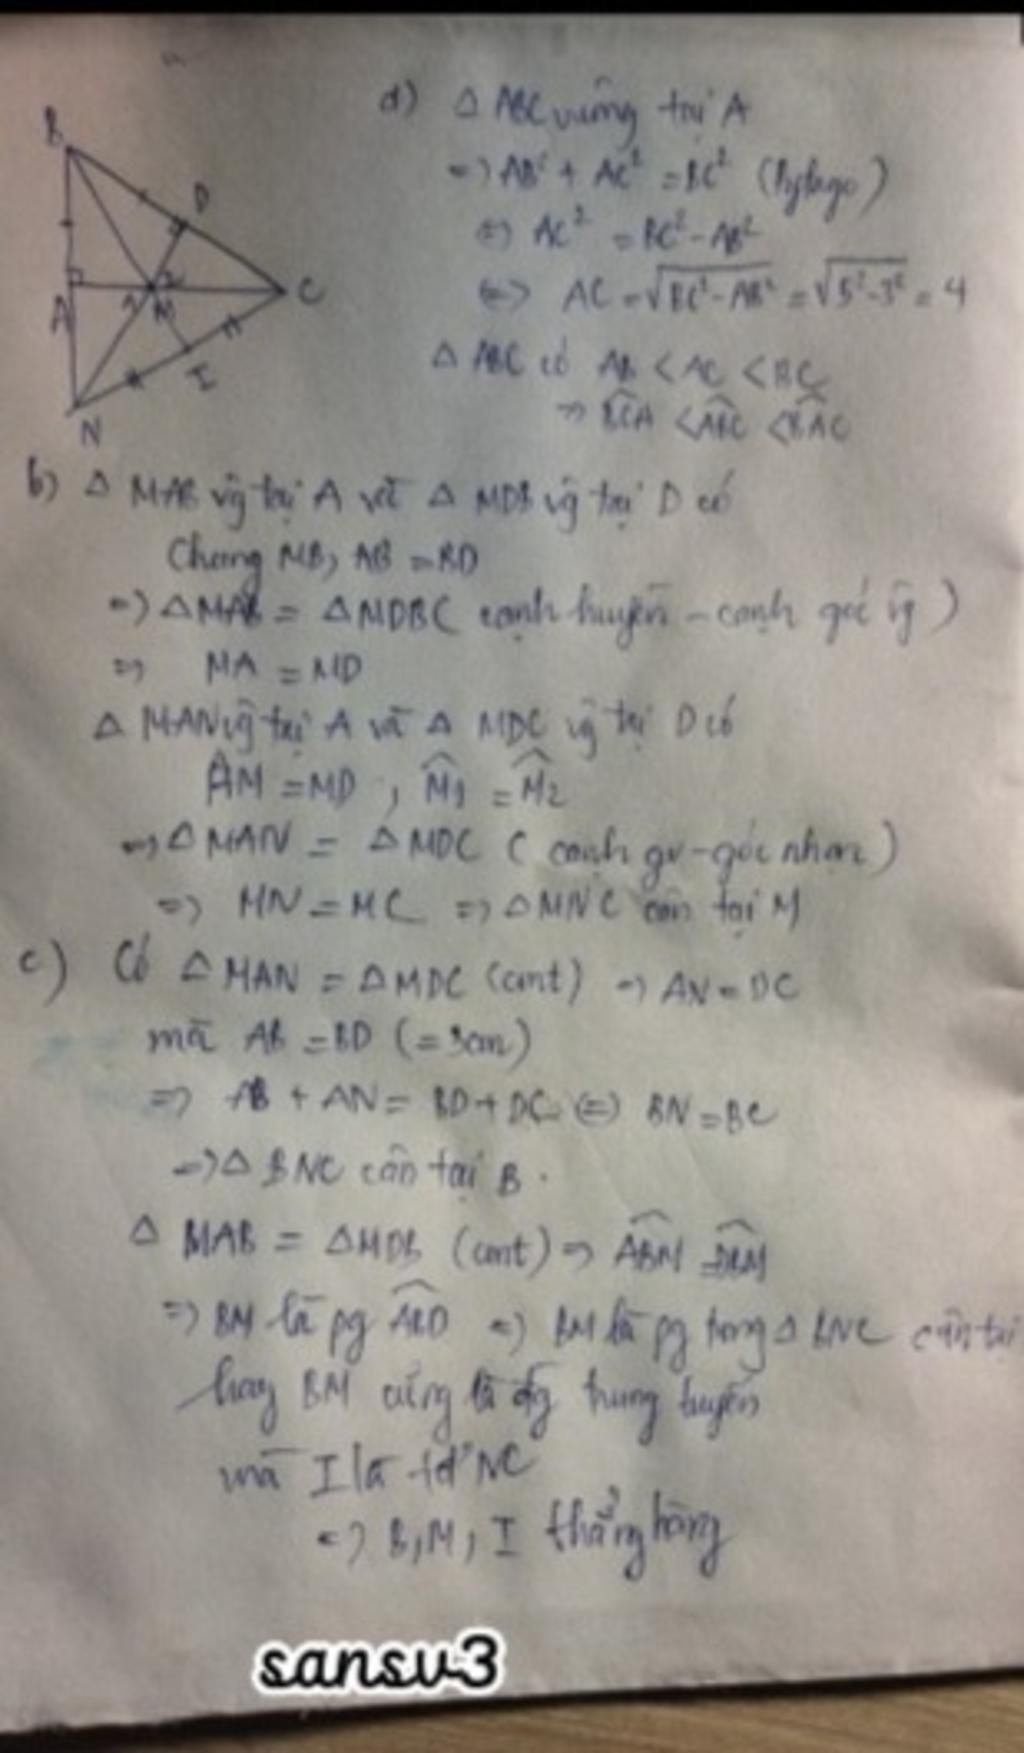 B
D
C
A
1
2
M
I
N
a) Δ ABC vuông tại A
=> AB² + AC² = BC² (Pytago)
<=> AC² = BC² - AB²
<=> AC = √BC² - AB² = √5² - 3² = 4
Δ ABC có AB < AC < BC
=> BCA < ABC < BAC
b) Δ MAB vg tại A và Δ MDB vg tại D có
Chung MB, AB = BD
=> Δ MAB = Δ MDB ( cạnh huyền - cạnh góc vg )
=> MA = MD
Δ MAN vg tại A và Δ MDC vg tại D có
AM = MD , M1 = M2
=> Δ MAN = Δ MDC ( cạnh gv - góc nhọn )
=> MN = MC => Δ MNC cân tại M
c) Có Δ MAN = Δ MDC (cmt) => AN = DC
mà AB = BD (= 3cm)
=> AB + AN = BD + DC <=> BN = BC
=> Δ BNC cân tại B .
Δ MAB = Δ MDB (cmt) => ABM = DBM
=> BM là pg ABD => BM là pg trong Δ BNC cân tại
hay BM cũng là đg trung tuyến
mà I là tđ NC
=> B, M, I thẳng hàng
sansv3